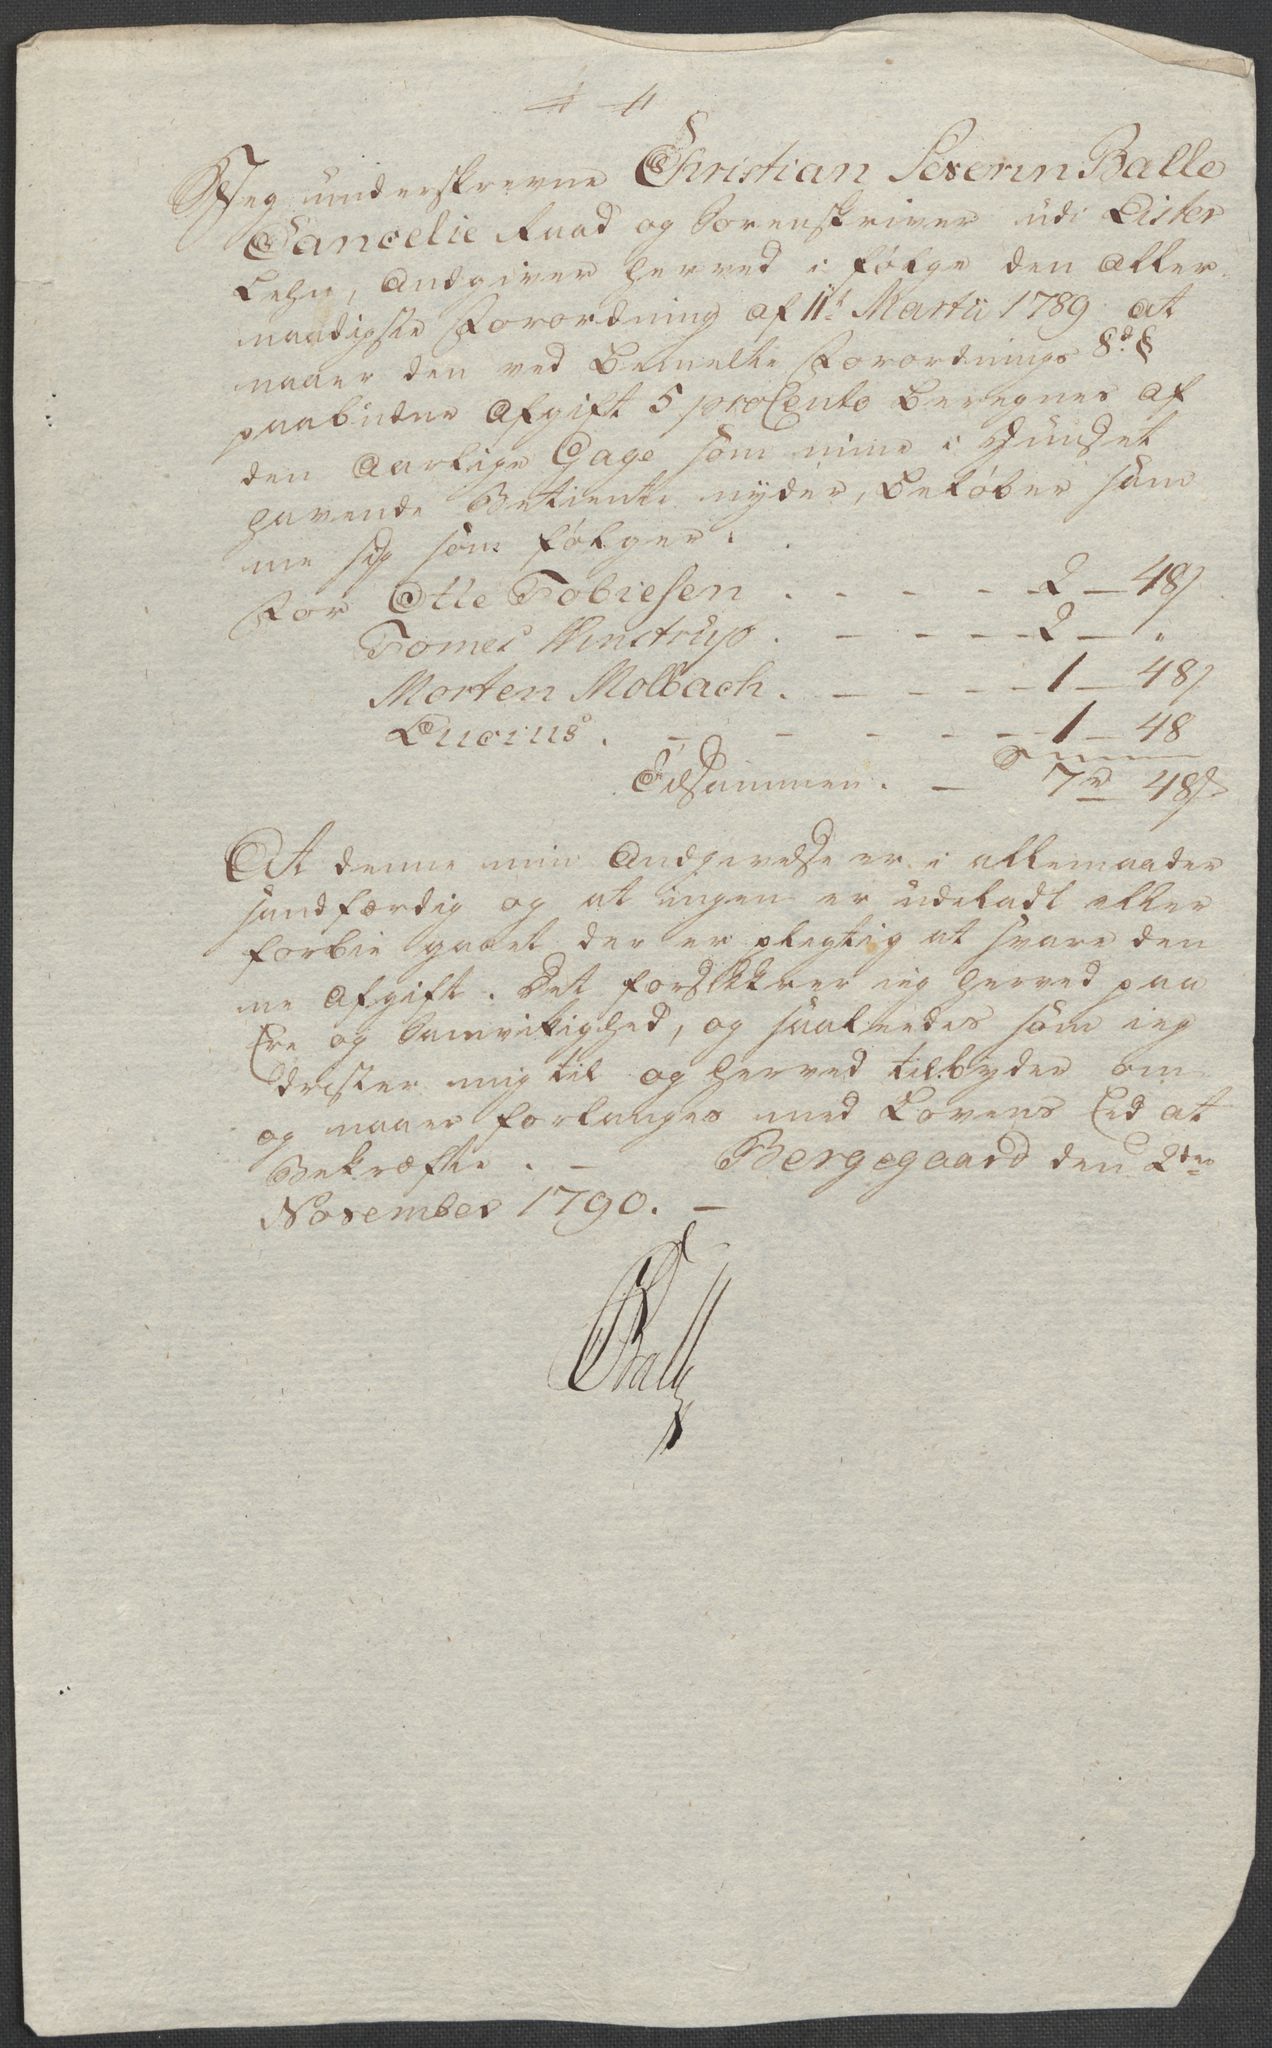 Jeg underskrevne Christian Severin Balle
Cancelie Raad og Sorenskriver udi Lister
Lehn, Andgiver herved i følge den Aller-
naadigste Forordning af 11t Martii 1789 at
naaer den ved bemelte Forordnings 8d §
paabudne Afgift 5 pro Cento beregnes af
den Aarlige Gage som mine i Huuset
havende Betiente nyder, beløber sam
me sig som følger:
For Otte Tobiesen . - - - - 2 - 48s
Tomes Winstrup . - - - - 2 - "
Morten Molbach . - - - - 1 - 48s
Lucius . - - - - - 1 - 48
Tilsammen . - 7r 48s
At denne min Andgivelse er i allemaader
sandfærdig og at ingen er udeladt eller
forbie gaaet der er plegtig at svare den
ne Afgift. Det forsikkrer ieg herved paa
Ære og Samvitighed, og saaledes som ieg
drister mig til og herved tilbyder om
og naaer forlanges med Lovens Eed at
Bekræfte. - Bergegaard den 2den
November 1790. -
Balle